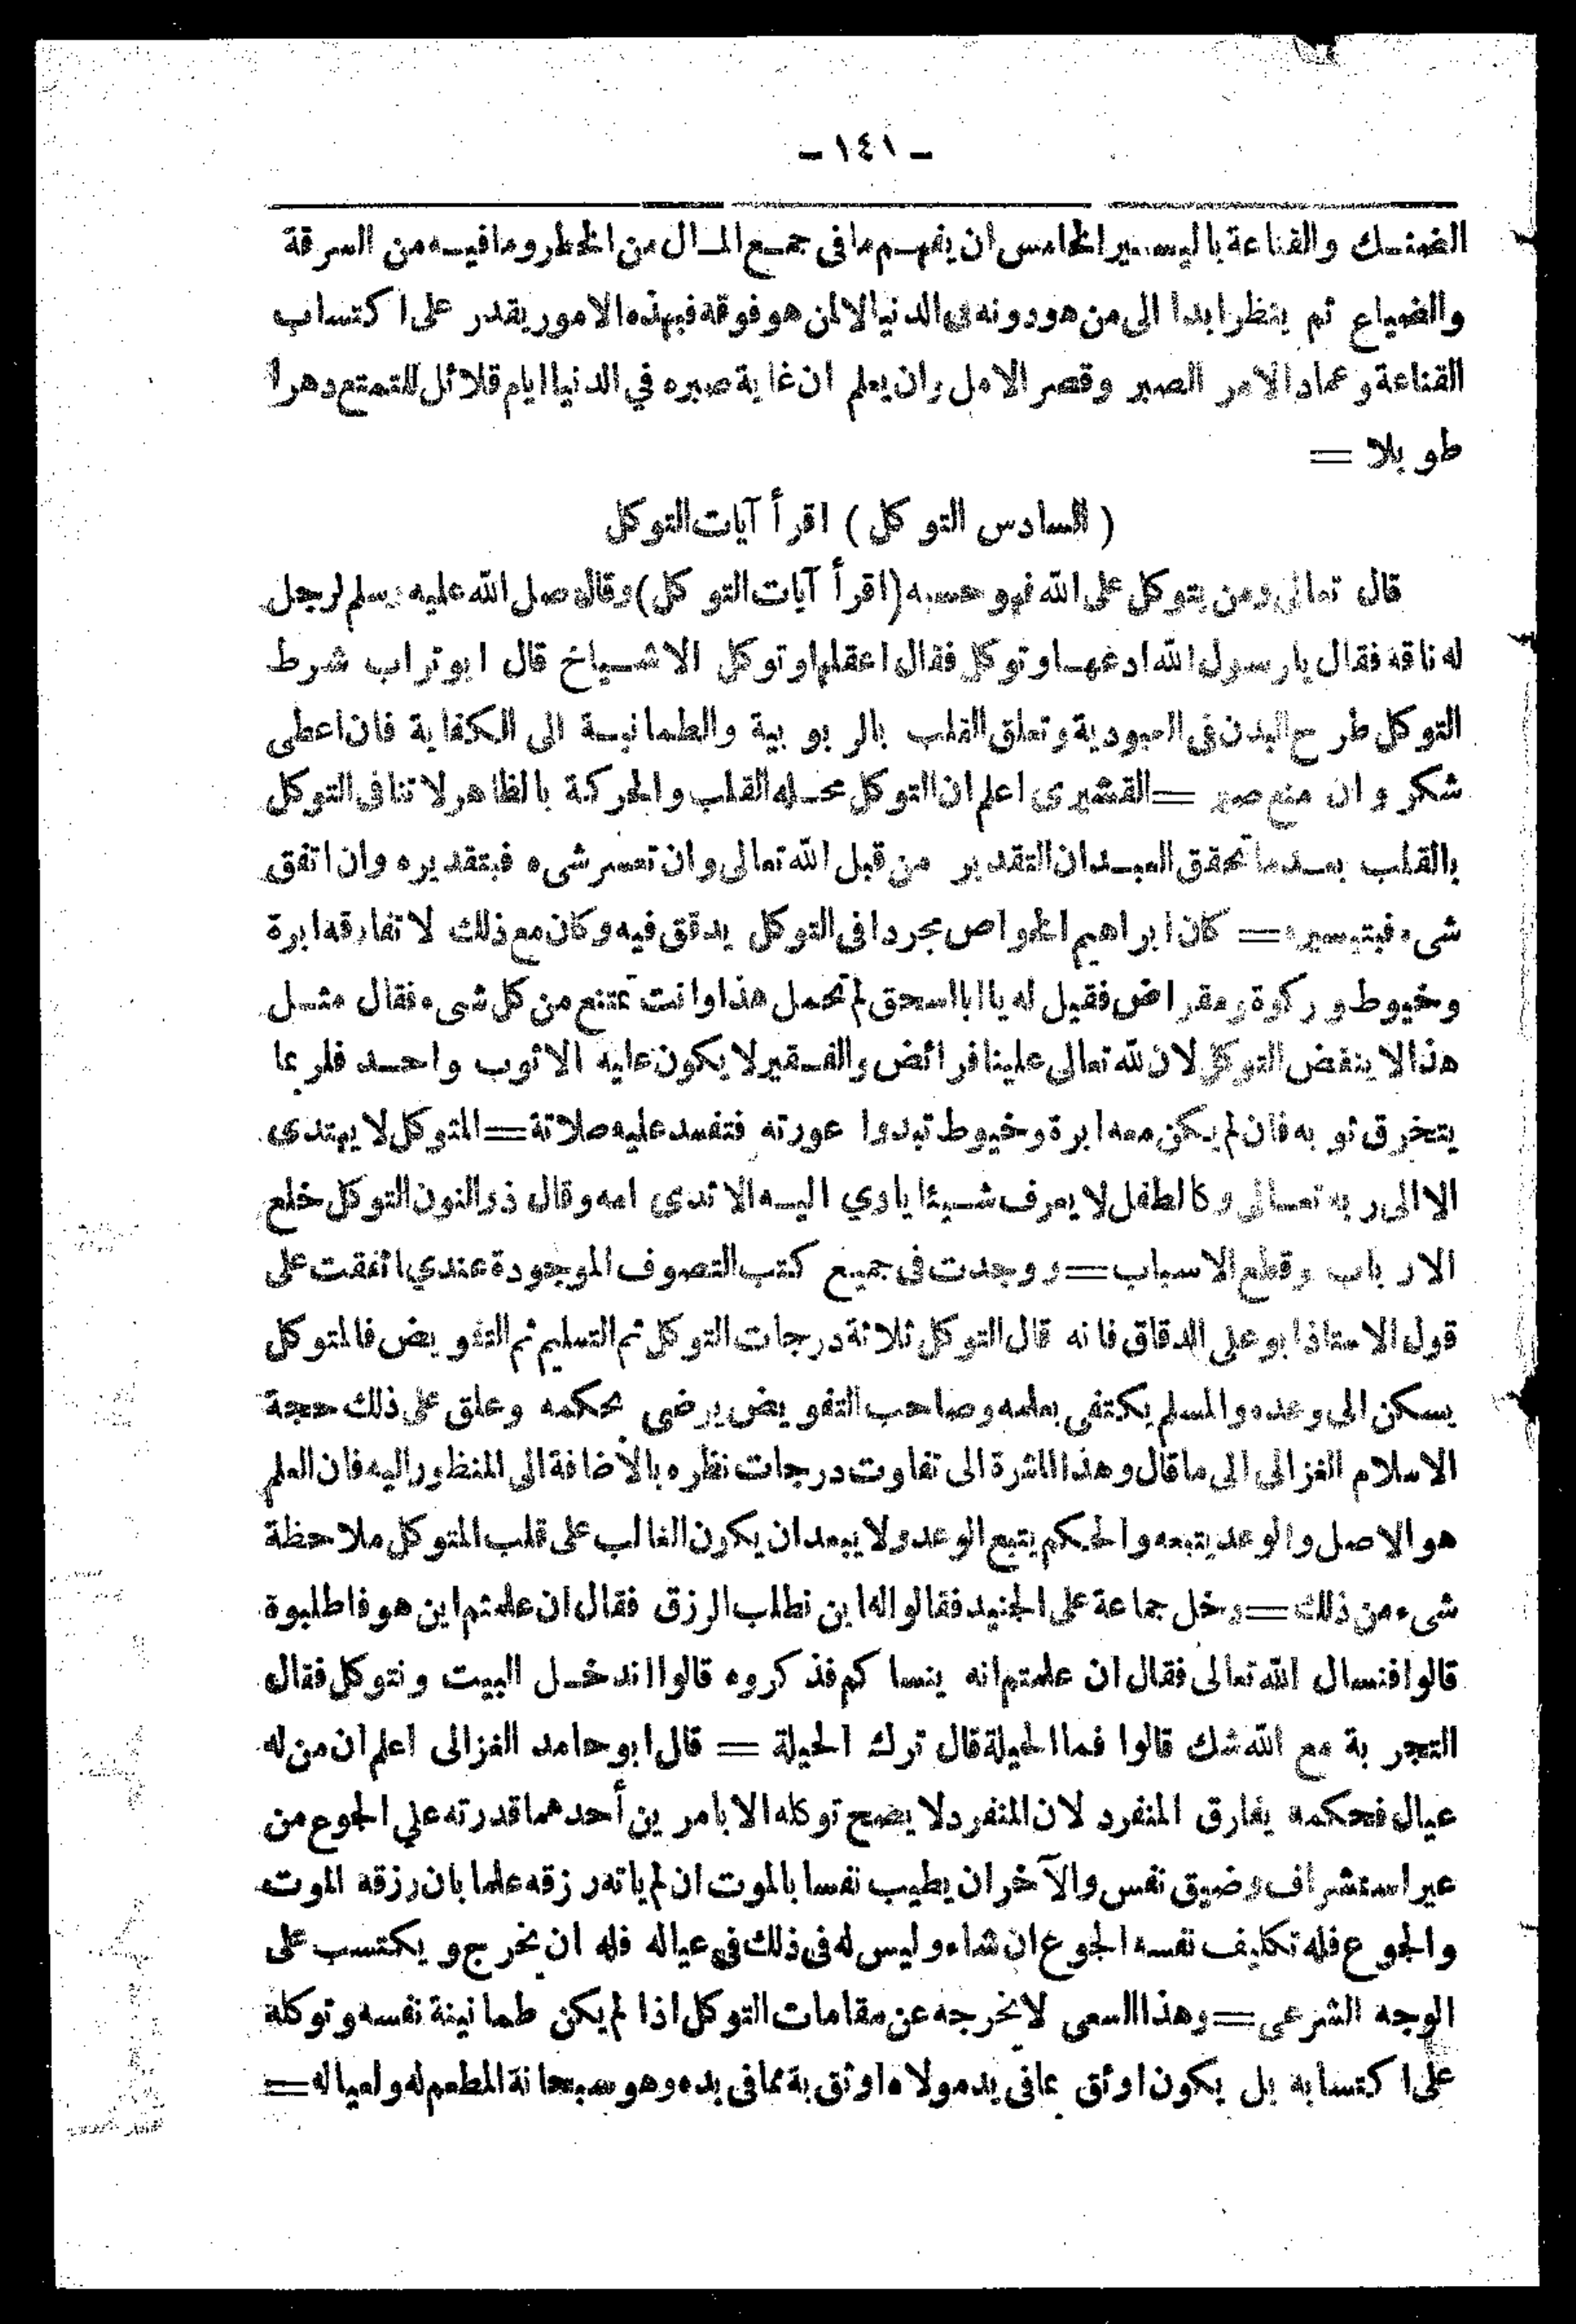 - ١٤١ -
الضنك والقناعة باليسير الخامس ان يفهم مافى جمع المال من الخطر ومافيه من السرقة
والضياع ثم ينظر ابدا الى من هو دونه فى الدنيا لا لمن هو فوقه فبهذه الامور يقدر على اكتساب
القناعة وعماد الامر الصبر وقصر الامل وان يعلم ان غاية صبره في الدنيا ايام قلائل للتمتع دهرا
طويلا =
( السادس التوكل ) اقرأ آيات التوكل
قال تعالى ومن يتوكل على الله فهو حسبه (اقرأ آيات التوكل) وقال صل الله عليه وسلم لرجل
له ناقة فقال يارسول الله ادعها وتوكل فقال اعقلها وتوكل الاشياخ قال ابو تراب شرط
التوكل طرح البدن فى العبودية وتعلق القلب بالربوبية والطمانيسة الى الكفاية فان اعطى
شكر وان منع صبر = القشيرى اعلم ان التوكل محله القلب والحركة بالظاهر لا تنافى التوكل
بالقلب بعد ما تحقق العبد ان التقدير من قبل الله تعالى وان تعسر شىء فبتقديره وان اتفق
شىء فبتيسيره = كان ابراهيم الخواص مجردا فى التوكل يدقق فيه وكان مع ذلك لا تفارقه ابرة
وخيوط وركوة ومقراض فقيل له يا ابا اسحق لم تحمل هذا وانت تمتنع من كل شىء فقال مثل
هذا لا ينقض التوكل لان لله تعالى علينا فرائض والفقير لا يكون عليه الا ثوب واحد فلربما
يتخرق ثوبه فان لم يكن معه ابرة وخيوط تبدوا عورته فتفسد عليه صلاتة = المتوكل لا يهتدى
الا الى ربه تعالى وكالطفل لا يعرف شيئا ياوي اليه الا ثدى امه وقال ذو النون التوكل خلع
الارباب وقطع الاسباب = ووجدت فى جميع كتب التصوف الموجودة عندي اتفقت على
قول الاستاذ ابو على الدقاق فانه قال التوكل ثلاثة درجات التوكل ثم التسليم ثم التفويض فالمتوكل
يسكن الى وعده والمسلم يكتفى بعلمه وصاحب التفويض يرضى بحكمه وعلق على ذلك حجة
الاسلام الغزالى الى ماقال وهذا اشرة الى تفاوت درجات نظره بالأضافة الى المنظور اليه فان العلم
هو الاصل والوعد يتبعه والحكم يتبع الوعد ولا يبعد ان يكون الغالب على قلب المتوكل ملاحظة
شىء من ذلك = دخل جماعة على الجنيد فقالوا له اين نطلب الرزق فقال ان علمتم اين هو فاطلبوة
قالوا فنسال الله تعالى فقال ان علمتم انه ينساكم فذكروه قالوا اندخل البيت ونتوكل فقال
التجربة مع الله شك قالوا فما الحيلة قال ترك الحيلة = قال ابو حامد الغزالى اعلم ان من له
عيال فحكمه يفارق المنفرد لان المنفرد لا يصح توكله الا بامرين أحدهما قدرته علي الجوع من
عير استشراف وضيق نفس والآخر ان يطيب نفسا بالموت ان لم ياته رزقه علما بان رزقه الموت
والجوع فله تكليف نفسه الجوع ان شاء وليس له فى ذلك فى عياله فله ان يخرج ويكتسب على
الوجه الشرعى = وهذا السعى لا يخرجه عن مقامات التوكل اذا لم يكن طمانينة نفسه وتوكله
على اكتسابه بل يكون اوثق بما فى يد مولاه اوثق بة مما فى يده وهو سبحانة المطعم له ولعياله =